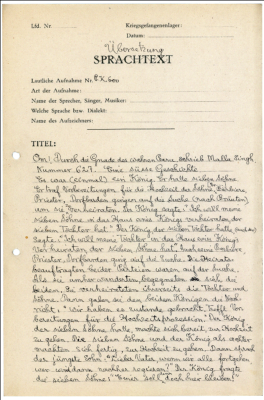 Lfd. Nr.
Kriegsgefangenenlager:
Datum:
Übersetzung
SPRACHTEXT
Lautliche Aufnahme Nr. P.K. 600
Art der Aufnahme:
Name der Sprecher, Sänger, Musiker:
Welche Sprache bzw. Dialekt:
Name des Aufzeichners:
TITEL:
Om! Durch die Gnade des wahren Guru schrieb Malla Singh,
Nummer 627. Eine süsse Geschichte
Es war (einmal) ein König. Er hatte sieben Söhne.
Er traf Vorbereitungen für die Hochzeit der Söhne. Barbiere,
Priester, Dorfbarden gingen auf die Suche (nach Bräuten)
um sie zu verheiraten. Der König sagte: "Ich will meine
sieben Söhne in das Haus eines Königs verheiraten, der
sieben Töchter hat." Der König der sieben Töchter hatte
sagte: "Ich will meine Töchter in das Haus eines Königs
verheiraten, der sieben Söhne hat." Auch seine Barbiere
Priester, Dorfbarden ging auf die Suche. Die Heirats-
beauftragten beider Parteien waren auf der Suche.
Als sie umherwanderten, begegneten sich die
beiden. Sie verheirateten ihrerseits die Töchter und
Söhne. Dann gaben sie den beiden Königen die Nach-
richt: "Wir haben es zustande gebracht. Trefft Vor-
bereitungen für die Hochzeitsprozession." Der König
der sieben Söhne hatte, machte sich bereit, zur Hochzeit
zu gehen. Die sieben Söhne und der König als achter
machten sich fertig, zur Hochzeit zu gehen. Dann sprach
der jüngste Sohn: "Lieber Vater, wenn wir alle fortgehen
wer wird dann nachher regieren?" Der König fragte
die sieben Söhne: "Einer soll doch hier bleiben!"